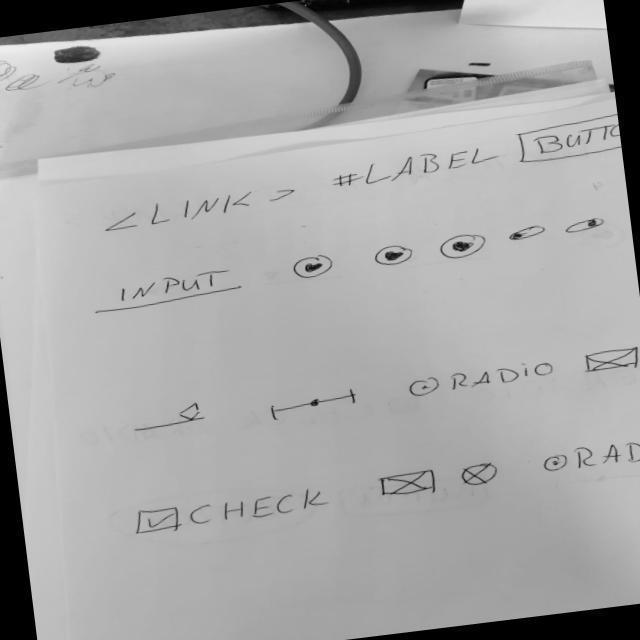 <LINK> #LABEL BUTTO
INPUT
RADIO
CHECK RAD